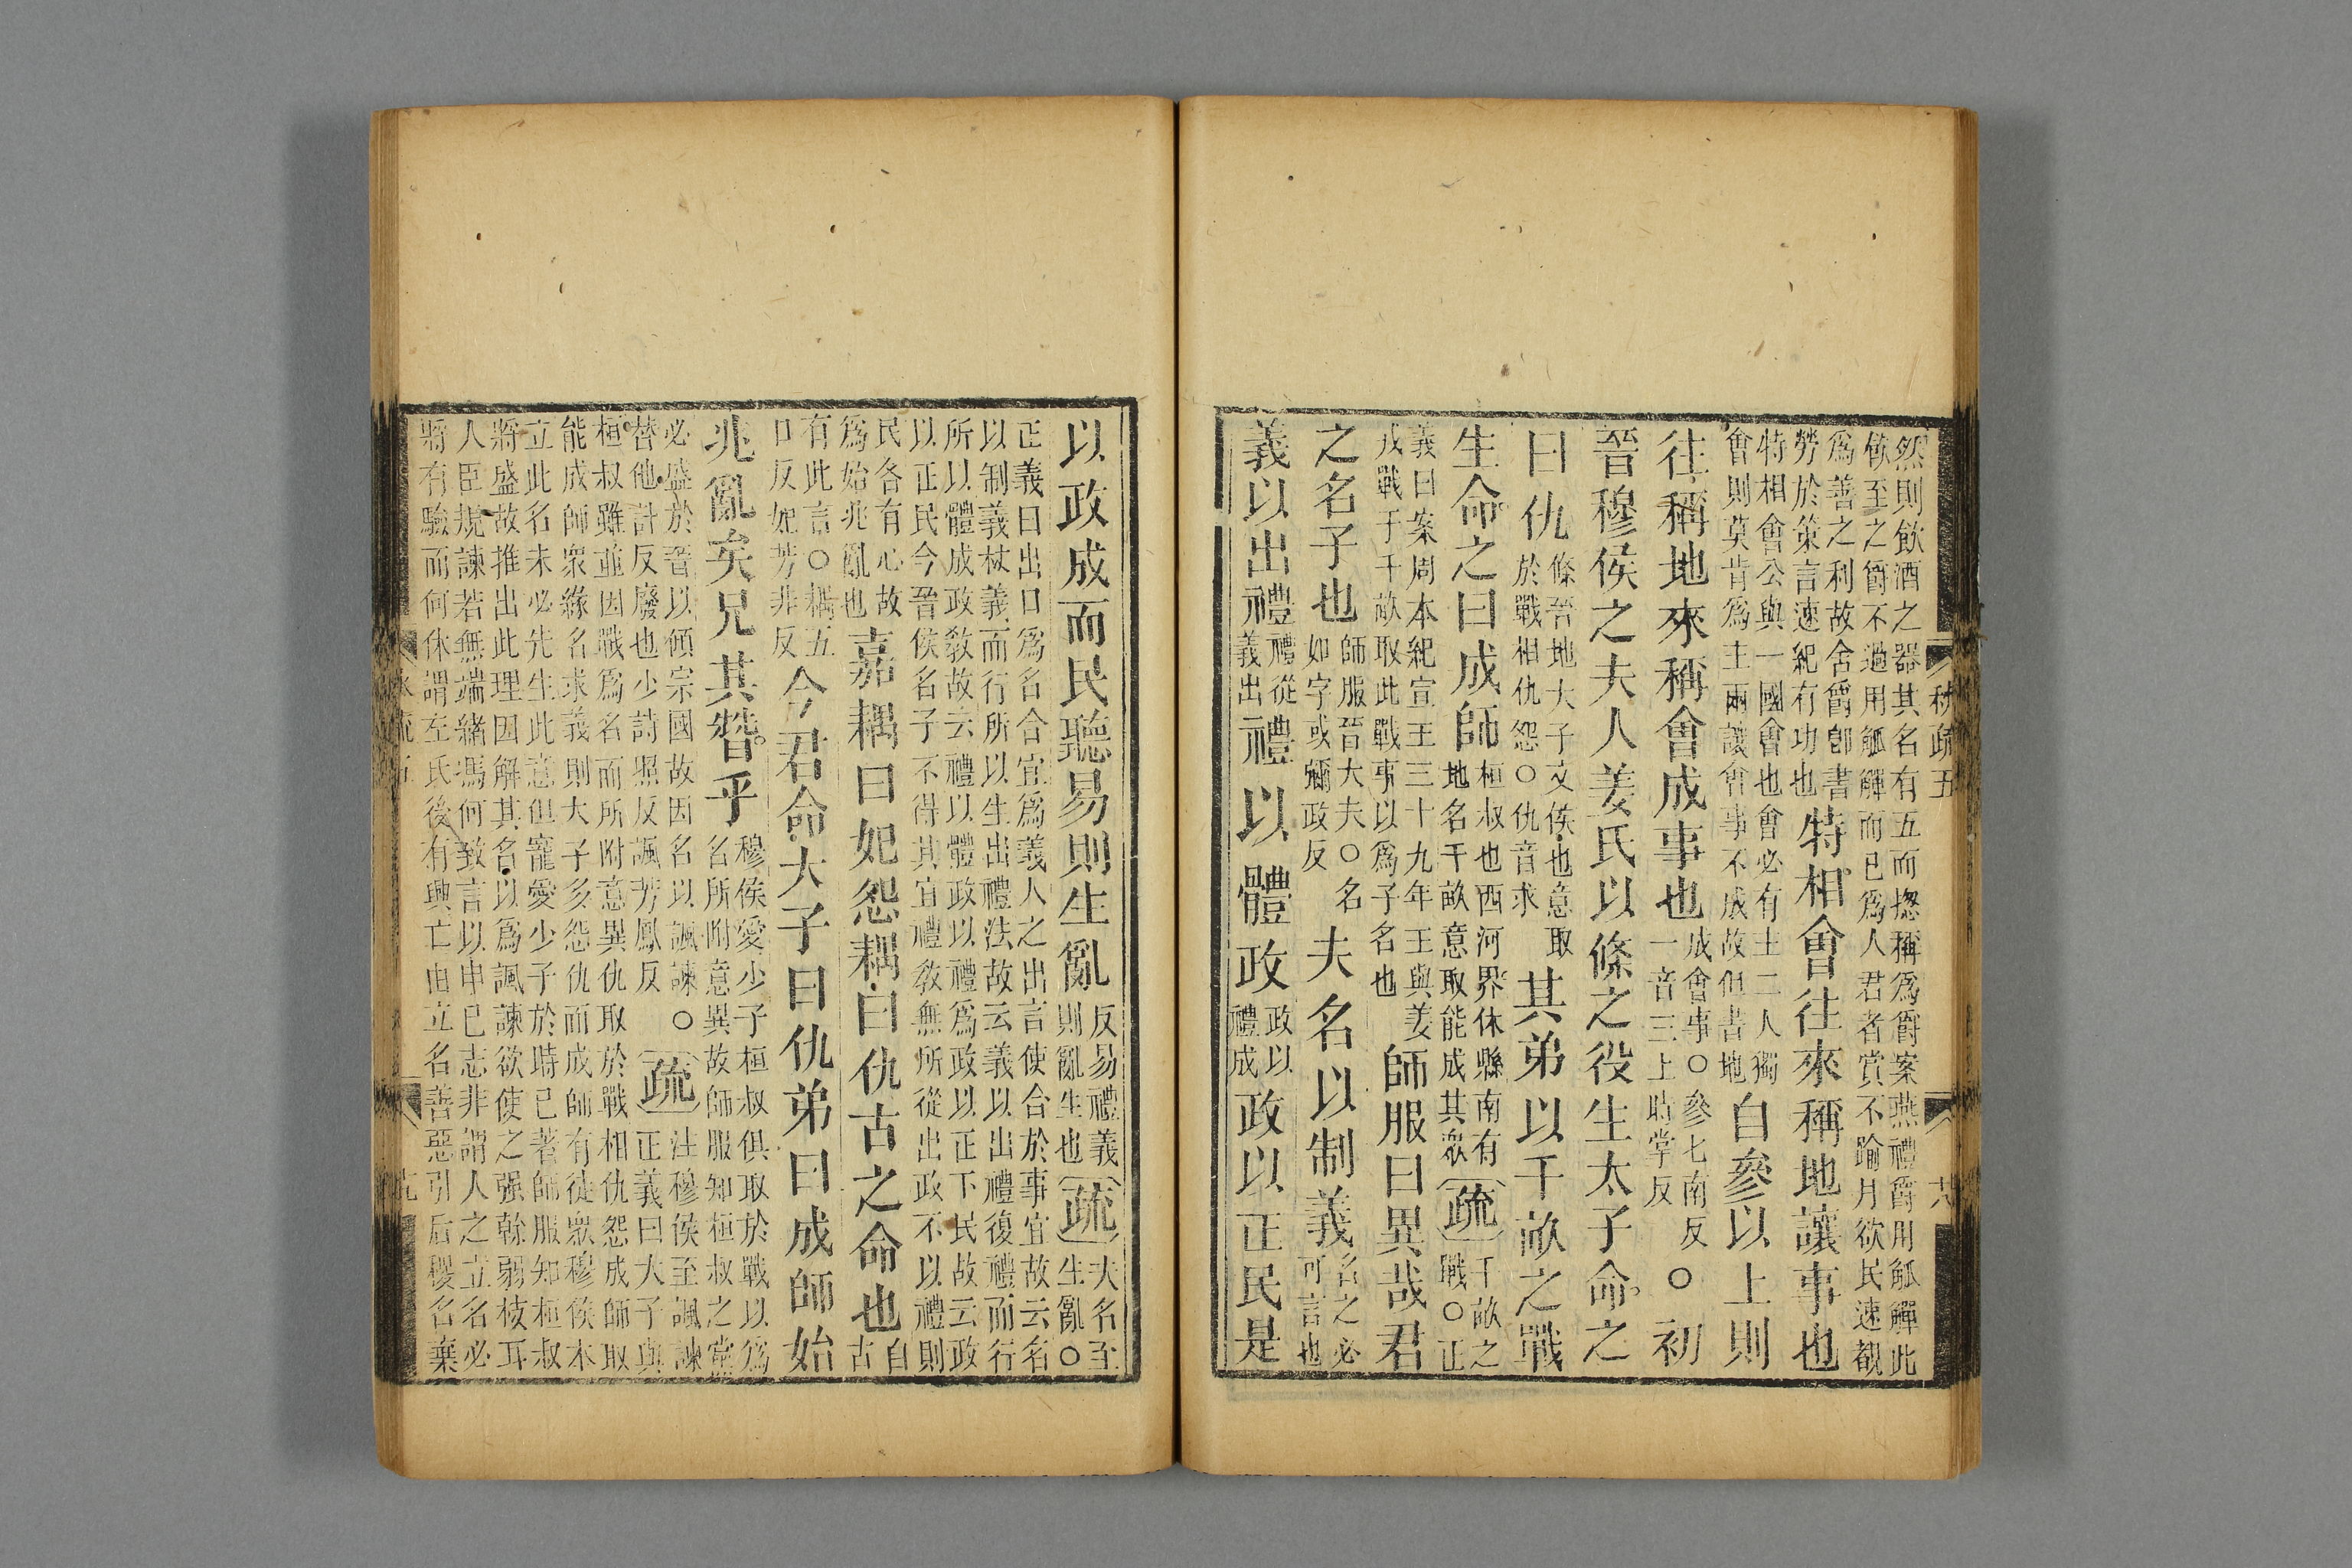 然則飲酒之器其名有五而揔稱為爵案燕禮爵用觚觶此
飲至之爵不過用觚觶而已為人君者賞不踰月欲民速覩
為善之利故舍爵卽書
勞於策言速紀有功也
特相會往來稱地讓事也
特相會公與一國會也會必有主二人獨
會則莫肯為主兩讓會事不成故但書地
自參以上則
往稱地來稱會成事也
成會事○參七南反
一音三上時掌反
○初
晉穆侯之夫人姜氏以條之役生太子命之
曰仇
條晉地大子文侯也意取
於戰相仇怨○仇音求
其弟以千畝之戰
生命之曰成師
桓叔也西河界休縣南有
地名千畝意取能成其衆
疏
千畝之
戰○正
義曰案周本紀宣王三十九年王與姜
戎戰于千畝取此戰事以為子名也
師服曰異哉君
之名子也
師服晉大夫○名
如字或彌政反
夫名以制義
名之必
可言也
義以出禮
禮從
義出
禮以體政
政以
禮成
政以正民是
以政成而民聽易則生亂
反易禮義
則亂生也
疏
夫名至
生亂○
正義曰出口為名合宜為義人之出言使合於事宜故云名
以制義杖義而行所以生出禮法故云義以出禮復禮而行
所以體成政敎故云禮以體政以禮為政以正下民故云政
以正民今晉侯名子不得其宜禮敎無所從出政不以禮則
民各有心故
為始兆亂也
嘉耦曰妃怨耦曰仇古之命也
自古
有此言○耦五
口反妃芳非反
今君命大子曰仇弟曰成師始
兆亂矣兄其替乎
穆侯愛少子桓叔俱取於戰以為
名所附意異故師服知桓叔之黨
必盛於晉以傾宗國故因名以諷諫○
替他計反廢也少詩照反諷芳鳳反
疏
注穆侯至諷諫
正義曰大子與
桓叔雖並因戰為名而所附意異仇取於戰相仇怨成師取
能成師衆緣名求義則大子多怨仇而成師有徒衆穆侯本
立此名未必先生此意但寵愛少子於時已著師服知桓叔
將盛故推出此理因解其名以為諷諫欲使之强幹弱枝耳
人臣規諫若無端緒馮何致言以申己志非謂人之立名必
將有驗而何休謂左氏後有興亡由立名善惡引后稷名棄
秋疏五
六